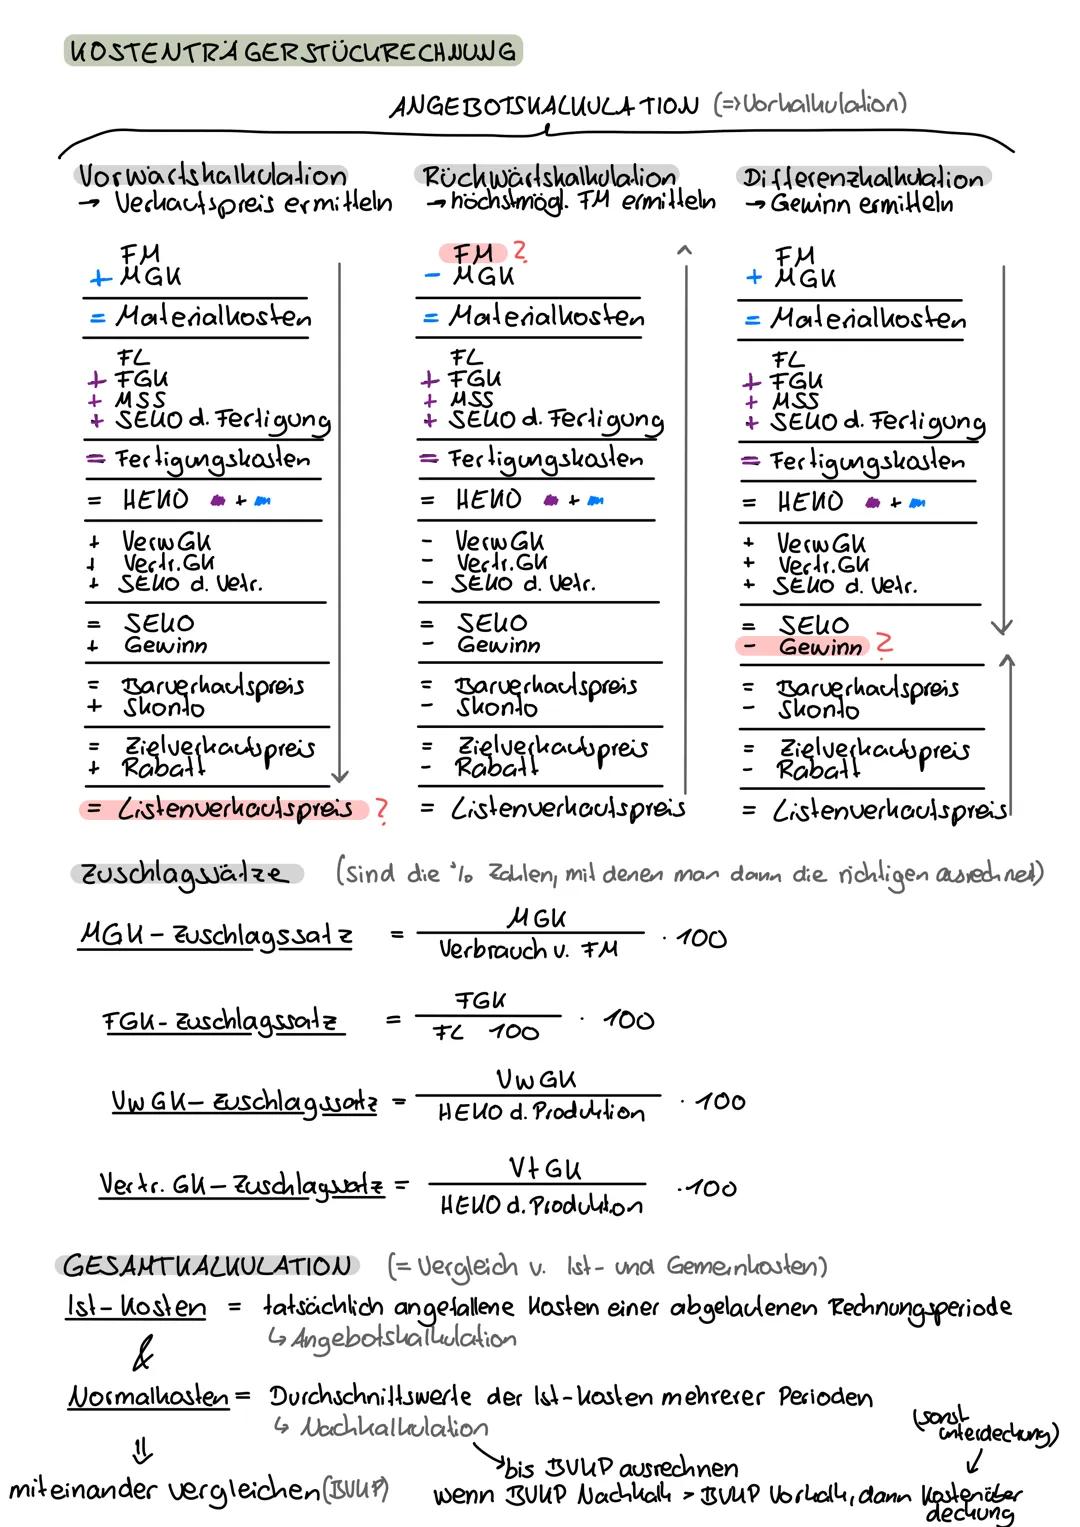 KOSTENTRÄGERSTÜCKRECHNUNG
ANGEBOTSKALKULATION (=> Vorkalkulation)
Vorwärtskalkulation
→ Verkaufspreis ermitteln
FM
+ MGK
= Materialkosten
FL
+ FGK
+ MSS
+ SEKO d. Fertigung
= Fertigungskosten
= HEKO +
+ VerwGK
+ Vertr.GK
+ SEKO d. Vetr.
= SEKO
+ Gewinn
= Barverkaufspreis
+ Skonto
= Zielverkaufspreis
+ Rabatt
= Listenverkaufspreis ?
Rückwärtskalkulation
→ höchstmögl. FM ermitteln
FM ?
- MGK
= Materialkosten
FL
+ FGK
+ MSS
+ SEKO d. Fertigung
= Fertigungskosten
= HEKO +
- VerwGK
- Vertr.GK
- SEKO d. Vetr.
= SEKO
- Gewinn
= Barverkaufspreis
- Skonto
= Zielverkaufspreis
- Rabatt
= Listenverkaufspreis
Differenzkalkulation
→ Gewinn ermitteln
FM
+ MGK
= Materialkosten
FL
+ FGK
+ MSS
+ SEKO d. Fertigung
= Fertigungskosten
= HEKO +
+ VerwGK
+ Vertr.GK
+ SEKO d. Vetr.
= SEKO
- Gewinn ?
= Barverkaufspreis
- Skonto
= Zielverkaufspreis
- Rabatt
= Listenverkaufspreis
Zuschlagssätze (sind die % Zahlen, mit denen man dann die richtigen ausrechnet)
MGK-Zuschlagssatz = MGK / Verbrauch v. FM · 100
FGK-Zuschlagssatz = FGK / FL 100 · 100
VwGK-Zuschlagssatz = VwGK / HEKO d. Produktion · 100
Vertr. GK-Zuschlagssatz = VtGK / HEKO d. Produktion · 100
GESAMTKALKULATION (= Vergleich v. Ist- und Gemeinkosten)
Ist-Kosten = tatsächlich angefallene Kosten einer abgelaufenen Rechnungsperiode
↳ Angebotskalkulation
&
Normalkosten = Durchschnittswerte der Ist-Kosten mehrerer Perioden
↳ Nachkalkulation
(sonst unterdeckung)
⇓
bis BVKP ausrechnen
miteinander vergleichen (BVKP)
wenn BVKP Nachkalk > BVKP Vorkalk, dann Kostenüber
deckung